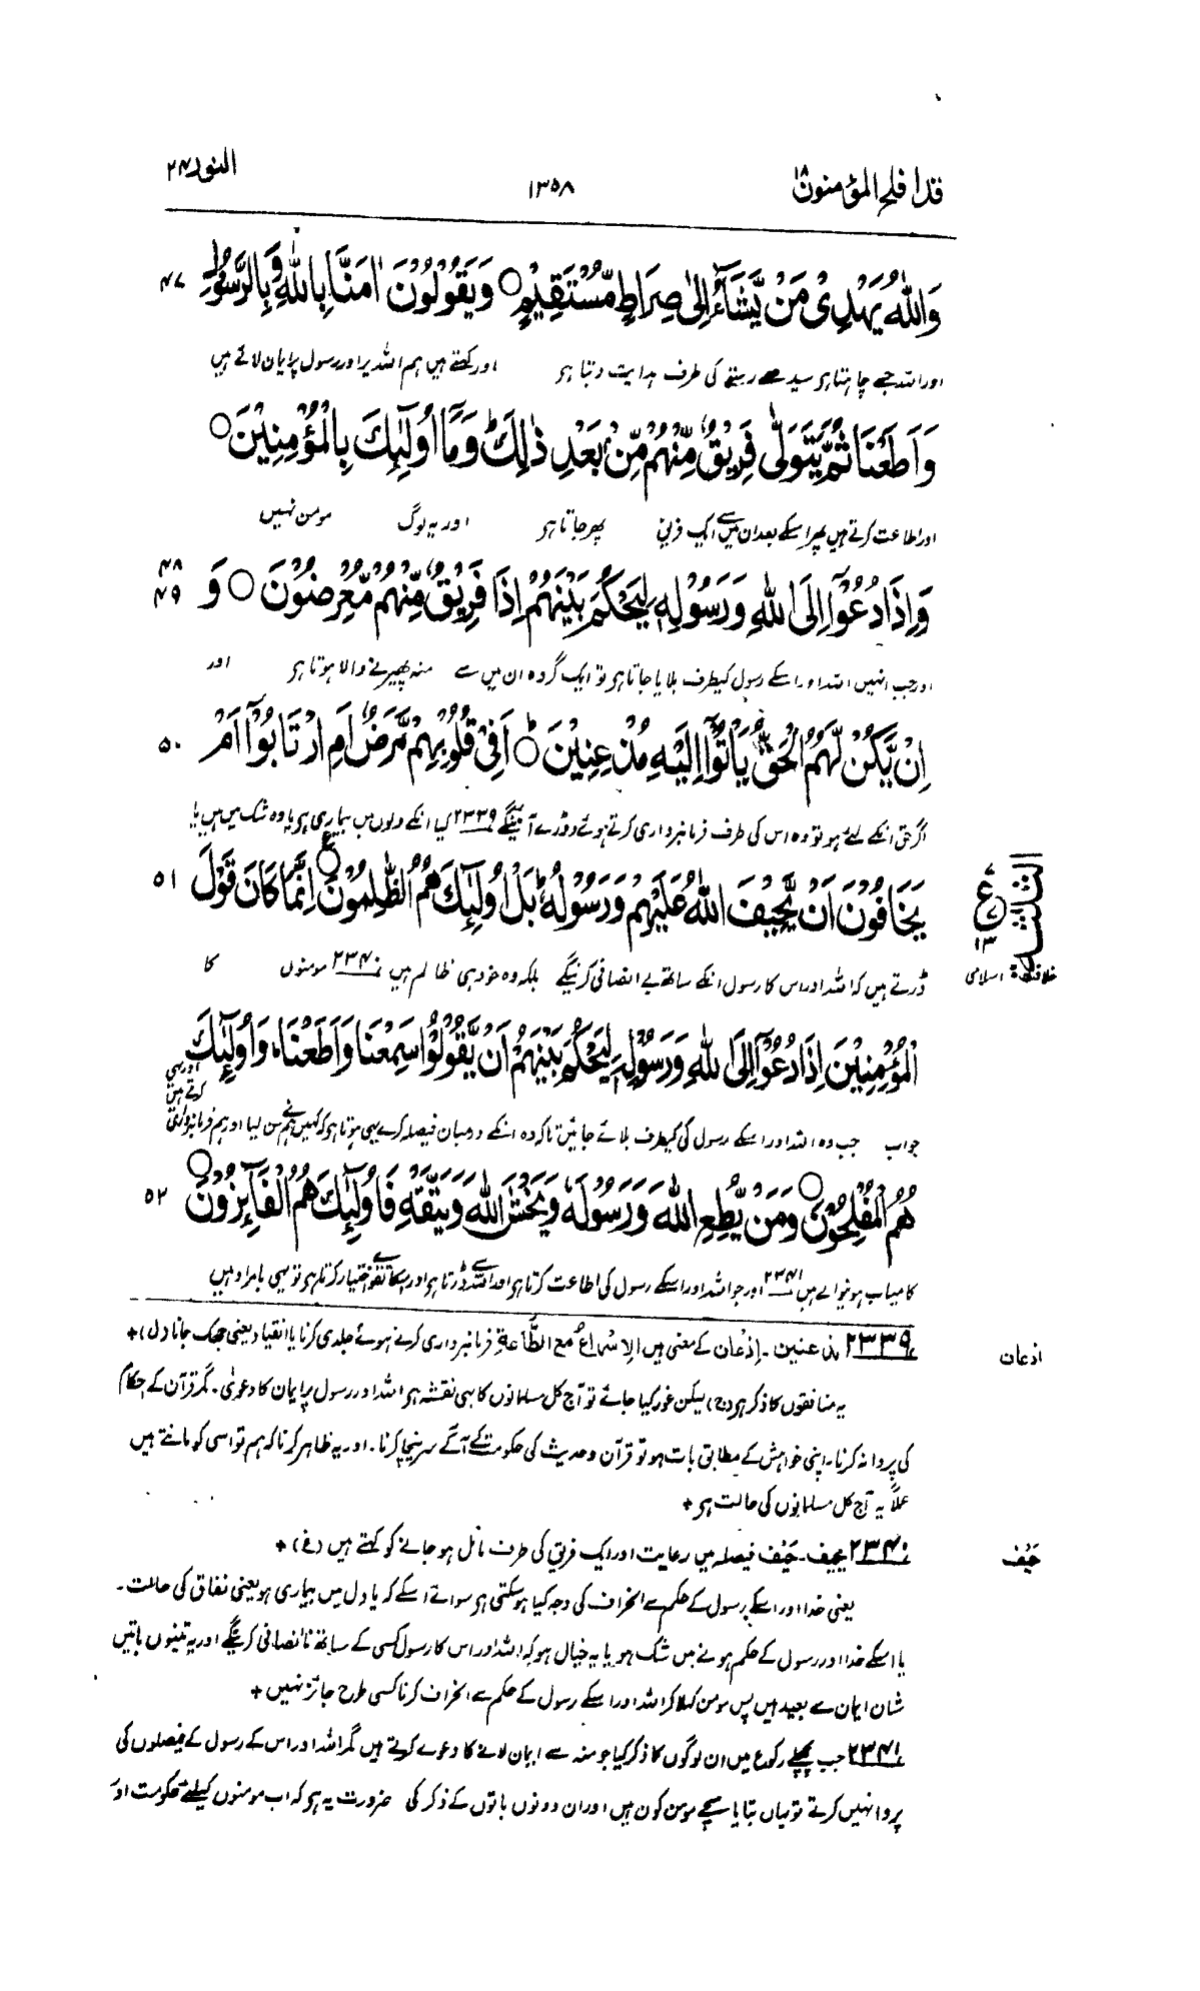 قد افلح المؤمنون ١٨
١٣٥٨
النور ٢٤
وَاللّٰهُ يَهْدِىْ مَنْ يَّشَآءُ اِلٰى صِرَاطٍ مُّسْتَقِيْمٍ ○ وَيَقُوْلُوْنَ اٰمَنَّا بِاللّٰهِ وَبِالرَّسُوْلِ
٤٧
اور اللہ جسے چاہتا ہو سیدھے رستے کی طرف ہدایت دیتا ہو اور کہتے ہیں ہم اللہ پر اور رسول پر ایمان لائے ہیں
وَاَطَعْنَا ثُمَّ يَتَوَلّٰى فَرِيْقٌ مِّنْهُمْ مِّنْۢ بَعْدِ ذٰلِكَ ؕ وَمَآ اُولٰٓئِكَ بِالْمُؤْمِنِيْنَ ○
اور اطاعت کرتے ہیں پھر اسکے بعد ان میں سے ایک فریق پھر جاتا ہو اور یہ لوگ مومن نہیں
وَاِذَا دُعُوْٓا اِلَى اللّٰهِ وَرَسُوْلِهٖ لِيَحْكُمَ بَيْنَهُمْ اِذَا فَرِيْقٌ مِّنْهُمْ مُّعْرِضُوْنَ ○ وَ
٤٨
٤٩
اور جب انہیں اللہ اور اسکے رسول کیطرف بلایا جاتا ہو تو ایک گروہ ان میں سے منہ پھیرنے والا ہوتا ہو اور
اِنْ يَّكُنْ لَّهُمُ الْحَقُّ يَاْتُوْٓا اِلَيْهِ مُذْعِنِيْنَ ○ؕ اَفِىْ قُلُوْبِهِمْ مَّرَضٌ اَمِ ارْتَابُوْٓا اَمْ
٥٠
اگر حق انکے لئے ہو تو وہ اس کی طرف فرمانبرداری کرتے ہوئے دوڑے آئینگے ٢٣٣٩ کیا انکے دلوں میں بیماری ہو یا وہ شک میں ہیں یا
يَخَافُوْنَ اَنْ يَّحِيْفَ اللّٰهُ عَلَيْهِمْ وَرَسُوْلُهٗ ؕ بَلْ اُولٰٓئِكَ هُمُ الظّٰلِمُوْنَ ○ع اِنَّمَا كَانَ قَوْلَ
٥١
الثلثة
ع
١٢
ڈرتے ہیں کہ اللہ اور اس کا رسول انکے ساتھ بے انصافی کرینگے بلکہ وہ خود ہی ظالم ہیں ٢٣٤٠ مومنوں کا
خلافت اسلامی
الْمُؤْمِنِيْنَ اِذَا دُعُوْٓا اِلَى اللّٰهِ وَرَسُوْلِهٖ لِيَحْكُمَ بَيْنَهُمْ اَنْ يَّقُوْلُوْا سَمِعْنَا وَاَطَعْنَا ؕ وَاُولٰٓئِكَ
جواب جب وہ اللہ اور اسکے رسول کی کیطرف بلائے جائیں تاکہ وہ انکے درمیان فیصلہ کرے یہی ہوتا ہو کہ کہیں ہم نے سن لیا اور ہم فرمانبرداری کرتے ہیں اور یہی
هُمُ الْمُفْلِحُوْنَ ○ وَمَنْ يُّطِعِ اللّٰهَ وَرَسُوْلَهٗ وَيَخْشَ اللّٰهَ وَيَتَّقْهِ فَاُولٰٓئِكَ هُمُ الْفَآئِزُوْنَ ○
٥٢
کامیاب ہونیوالے ہیں ٢٣٤١ اور جو اللہ اور اسکے رسول کی اطاعت کرتا ہو اور اللہ سے ڈرتا ہو اور اسکا تقویٰ اختیار کرتا ہو تو یہی بامراد ہیں
٢٣٣٩ مذعنین۔ اِذعان کے معنی ہیں الاسراع مع الطّاعۃ فرمانبرداری کرتے ہوئے جلدی کرنا یا انقیاد یعنی جھک جانا (ل) +
اذعان
یہ منافقوں کا ذکر ہو (ج) لیکن غور کیا جائے تو آج کل مسلمانوں کا یہی نقشہ ہو اللہ اور رسول پر ایمان کا دعویٰ۔ مگر قرآن کے احکام
کی پروا نہ کرنا۔ اپنی خواہش کے مطابق بات ہو تو قرآن و حدیث کی حکومت کے آگے سر نیچا کرنا۔ اور یہ ظاہر کرنا کہ ہم تو اسی کو مانتے ہیں
عملاً یہ آج کل مسلمانوں کی حالت ہو +
٢٣٤٠ یحیف۔ حَیْف فیصلہ میں رعایت اور ایک فریق کی طرف مائل ہو جانے کو کہتے ہیں (غ) +
حَیْف
یعنی خدا اور اسکے رسول کے حکم سے انحراف کی وجہ کیا ہو سکتی ہو سوائے اسکے کہ یا دل میں بیماری ہو یعنی نفاق کی حالت۔
یا اسکے خدا اور رسول کے حکم ہونے میں شک ہو یا یہ خیال ہو کہ اللہ اور اس کا رسول کسی کے ساتھ ناانصافی کرینگے اور یہ تینوں باتیں
شان ایمان سے بعید ہیں پس مومن کہلا کر اللہ اور اسکے رسول کے حکم سے انحراف کرنا کسی طرح جائز نہیں +
٢٣٤١ جب پچھلے رکوع میں ان لوگوں کا ذکر کیا جو منہ سے ایمان لانے کا دعوے کرتے ہیں مگر اللہ اور اس کے رسول کے فیصلوں کی
پروا نہیں کرتے تو یہاں بتایا سچے مومن کون ہیں اور ان دونوں باتوں کے ذکر کی ضرورت یہ ہو کہ اب مومنوں کیلئے حکومت اور